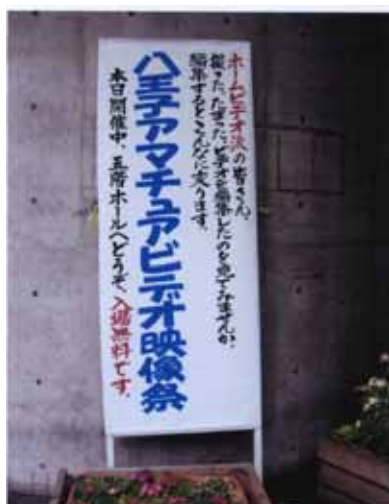 ホームビデオ派の皆さん、
撮った、たまった、ビデオを編集したのを見てみませんか、
編集するとこんなに変ります。
八王子アマチュアビデオ映像祭
本日開催中、五階ホールへどうぞ、入場無料です。